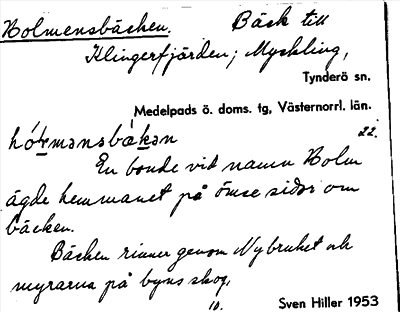 Holmensbäcken. Bäck till
Klingerfjärden; Myckling,
Tynderö sn.
Medelpads ö. doms. tg, Västernorrl. län.
22.
En bonde vid namn Holm
ägde hemmanet på ömse sidor om
bäcken.
Bäcken rinner genom Nybruket och
myrarna på byns skog.
10. Sven Hiller 1953